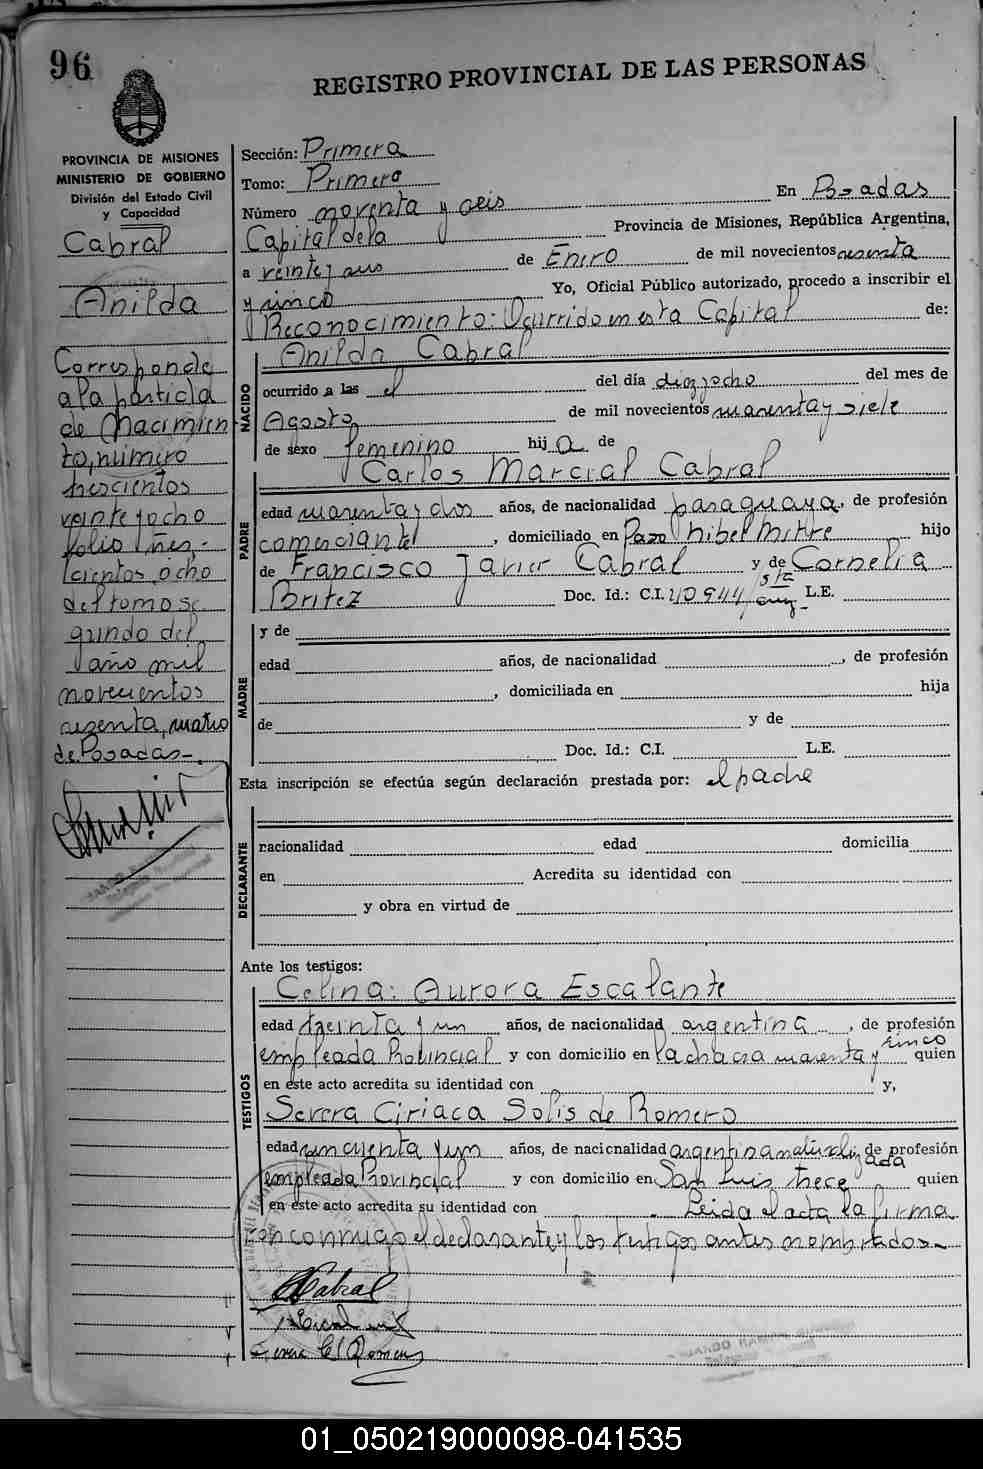 96
REGISTRO PROVINCIAL DE LAS PERSONAS
PROVINCIA DE MISIONES
MINISTERIO DE GOBIERNO
División del Estado Civil
y Capacidad
Cabral
Anilda
Corresponde
a la partida
de Nacimien
to, número
trescientos
veinte y ocho
folio tres-
cientos, ocho
del tomo se
gundo del
año mil
novecientos
sesenta, cuatro
de Posadas-.
Sección: Primera
Tomo: Primero
Número noventa y seis En Posadas
Capital de la Provincia de Misiones, República Argentina,
a veinte y seis de Enero de mil novecientos sesenta
y cinco Yo, Oficial Público autorizado, procedo a inscribir el
Reconocimiento: Ocurrido en esta Capital de:
Anilda Cabral
NACIDO
ocurrido a las el del día diez y ocho del mes de
Agosto de mil novecientos cuarenta y siete
de sexo femenino hija de
Carlos Marcial Cabral
PADRE
edad cuarenta y dos años, de nacionalidad paraguaya, de profesión
comerciante, domiciliado en Pazo hijo
de Francisco Javier Cabral y de Cornelia
Britez Doc. Id.: C.I. L.E.
y de
MADRE
edad años, de nacionalidad , de profesión
, domiciliada en hija
de y de
Doc. Id.: C.I. L.E.
Esta inscripción se efectúa según declaración prestada por: el padre
DECLARANTE
nacionalidad edad domicilia
en Acredita su identidad con
y obra en virtud de
Ante los testigos:
Celina: Aurora Escalante
TESTIGOS
edad treinta y un años, de nacionalidad argentina, de profesión
empleada Provincial y con domicilio en la chacra cuarenta y cinco quien
en este acto acredita su identidad con y,
Severa Ciriaca Solis de Romero
edad cincuenta y un años, de nacionalidad argentina naturalizada de profesión
empleada Provincial y con domicilio en San Luis trece quien
en este acto acredita su identidad con Leida el acta la firma
con conmigo el declarante y los testigos antes nombrados-
Cabral
01_050219000098-041535